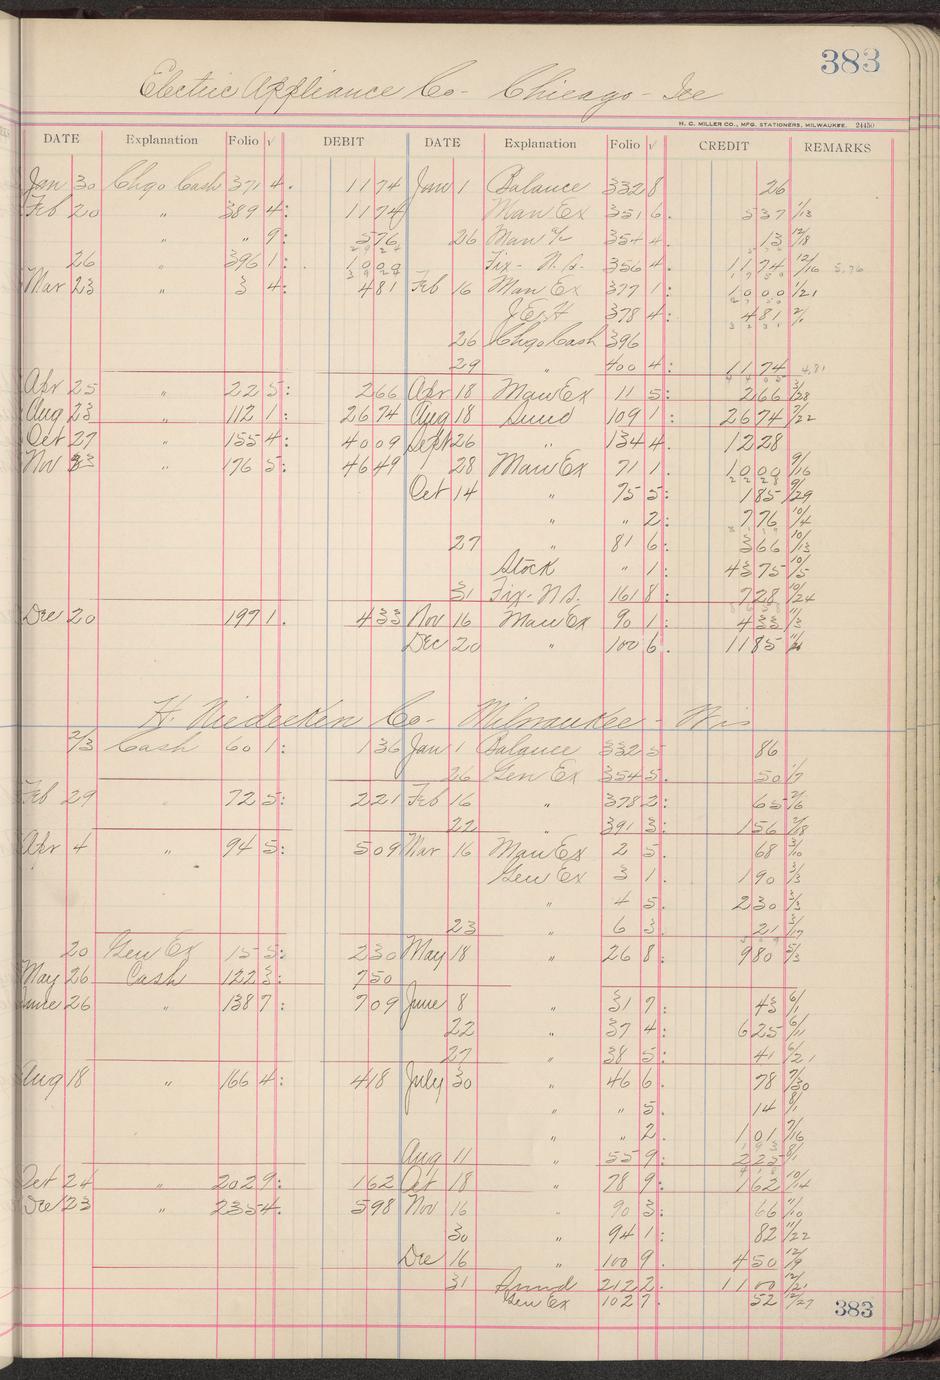 383
Electric Appliance Co- Chicago- Ice
H. C. MILLER CO., MFG. STATIONERS, MILWAUKEE. 24450
DATE Explanation Folio √ DEBIT DATE Explanation Folio √ CREDIT REMARKS
Jan 30 Chgo Cash 371 4. 11 74 Jan 1 Balance 332 8 26
Feb 20 " 389 4: 11 74 Man Ex 351 6. 5 37 1/13
" " 9: 5 76 26 Man a/c 354 4 13 12/18
26 " 396 1: 10 00 Fix- N.S. 356 4. 11 74 12/16 5.76
Mar 23 " 3 4: 4 81 Feb 16 Man Ex 377 1: 10 00 1/21
J.E.H 378 4: 4 81 2/1
26 Chgo Cash 396
29 " 400 4: 11 74 4.81
Apr 25 " 22 5: 2 66 Apr 18 Man Ex 11 5: 2 66 3/28
Aug 23 " 112 1: 26 74 Aug 18 Sund 109 1: 26 74 7/22
Oct 27 " 155 4: 40 09 Sept 26 " 134 4. 12 28
Nov 23 " 176 5: 46 49 28 Man Ex 71 1. 10 00 9/16
Oct 14 " 75 5: 1 85 9/29
" " 2: 7 76 10/4
27 " 81 6: 3 66 10/13
Stock " 1: 43 75 10/5
31 Fix- N.S. 161 8: 7 28 10/24
Dec 20 197 1. 4 33 Nov 16 Man Ex 90 1: 4 33 11/3
Dec 20 " 100 6. 11 85
H. Niedecken Co- Milwaukee- Wis
2/3 Cash 60 1: 1 36 Jan 1 Balance 332 5 86
26 Gen Ex 354 5. 50 1/7
Feb 29 " 72 5: 2 21 Feb 16 " 378 2: 65 2/6
22 " 391 3: 1 56 2/18
Apr 4 " 94 5: 5 09 Mar 16 Man Ex 2 5. 68 3/10
Gen Ex 3 1. 1 90 3/3
" 4 5. 2 30 3/3
23 " 6 3. 21 3/17
20 Gen Ex 15 5: 2 30 May 18 " 26 8: 9 80 5/3
May 26 Cash 122 3: 7 50
June 26 " 138 7: 7 09 June 8 " 31 7: 43 6/1
22 " 37 4: 6 25 6/11
27 " 38 5: 41 6/21
Aug 18 " 166 4: 4 18 July 30 " 46 6. 78 7/30
" " 5. 14 8/1
" " 2. 1 01 7/16
Aug 11 " 55 9: 2 25 8/1
Oct 24 " 202 9: 1 62 Oct 18 " 78 9: 1 62 10/14
Dec 23 " 235 4. 5 98 Nov 16 " 90 3: 66 11/10
30 " 94 1: 82 11/22
Dec 16 " 100 9. 4 50 12/9
31 Sund 212 2: 11 00 12/21
Gen Ex 102 7: 52 12/27
383